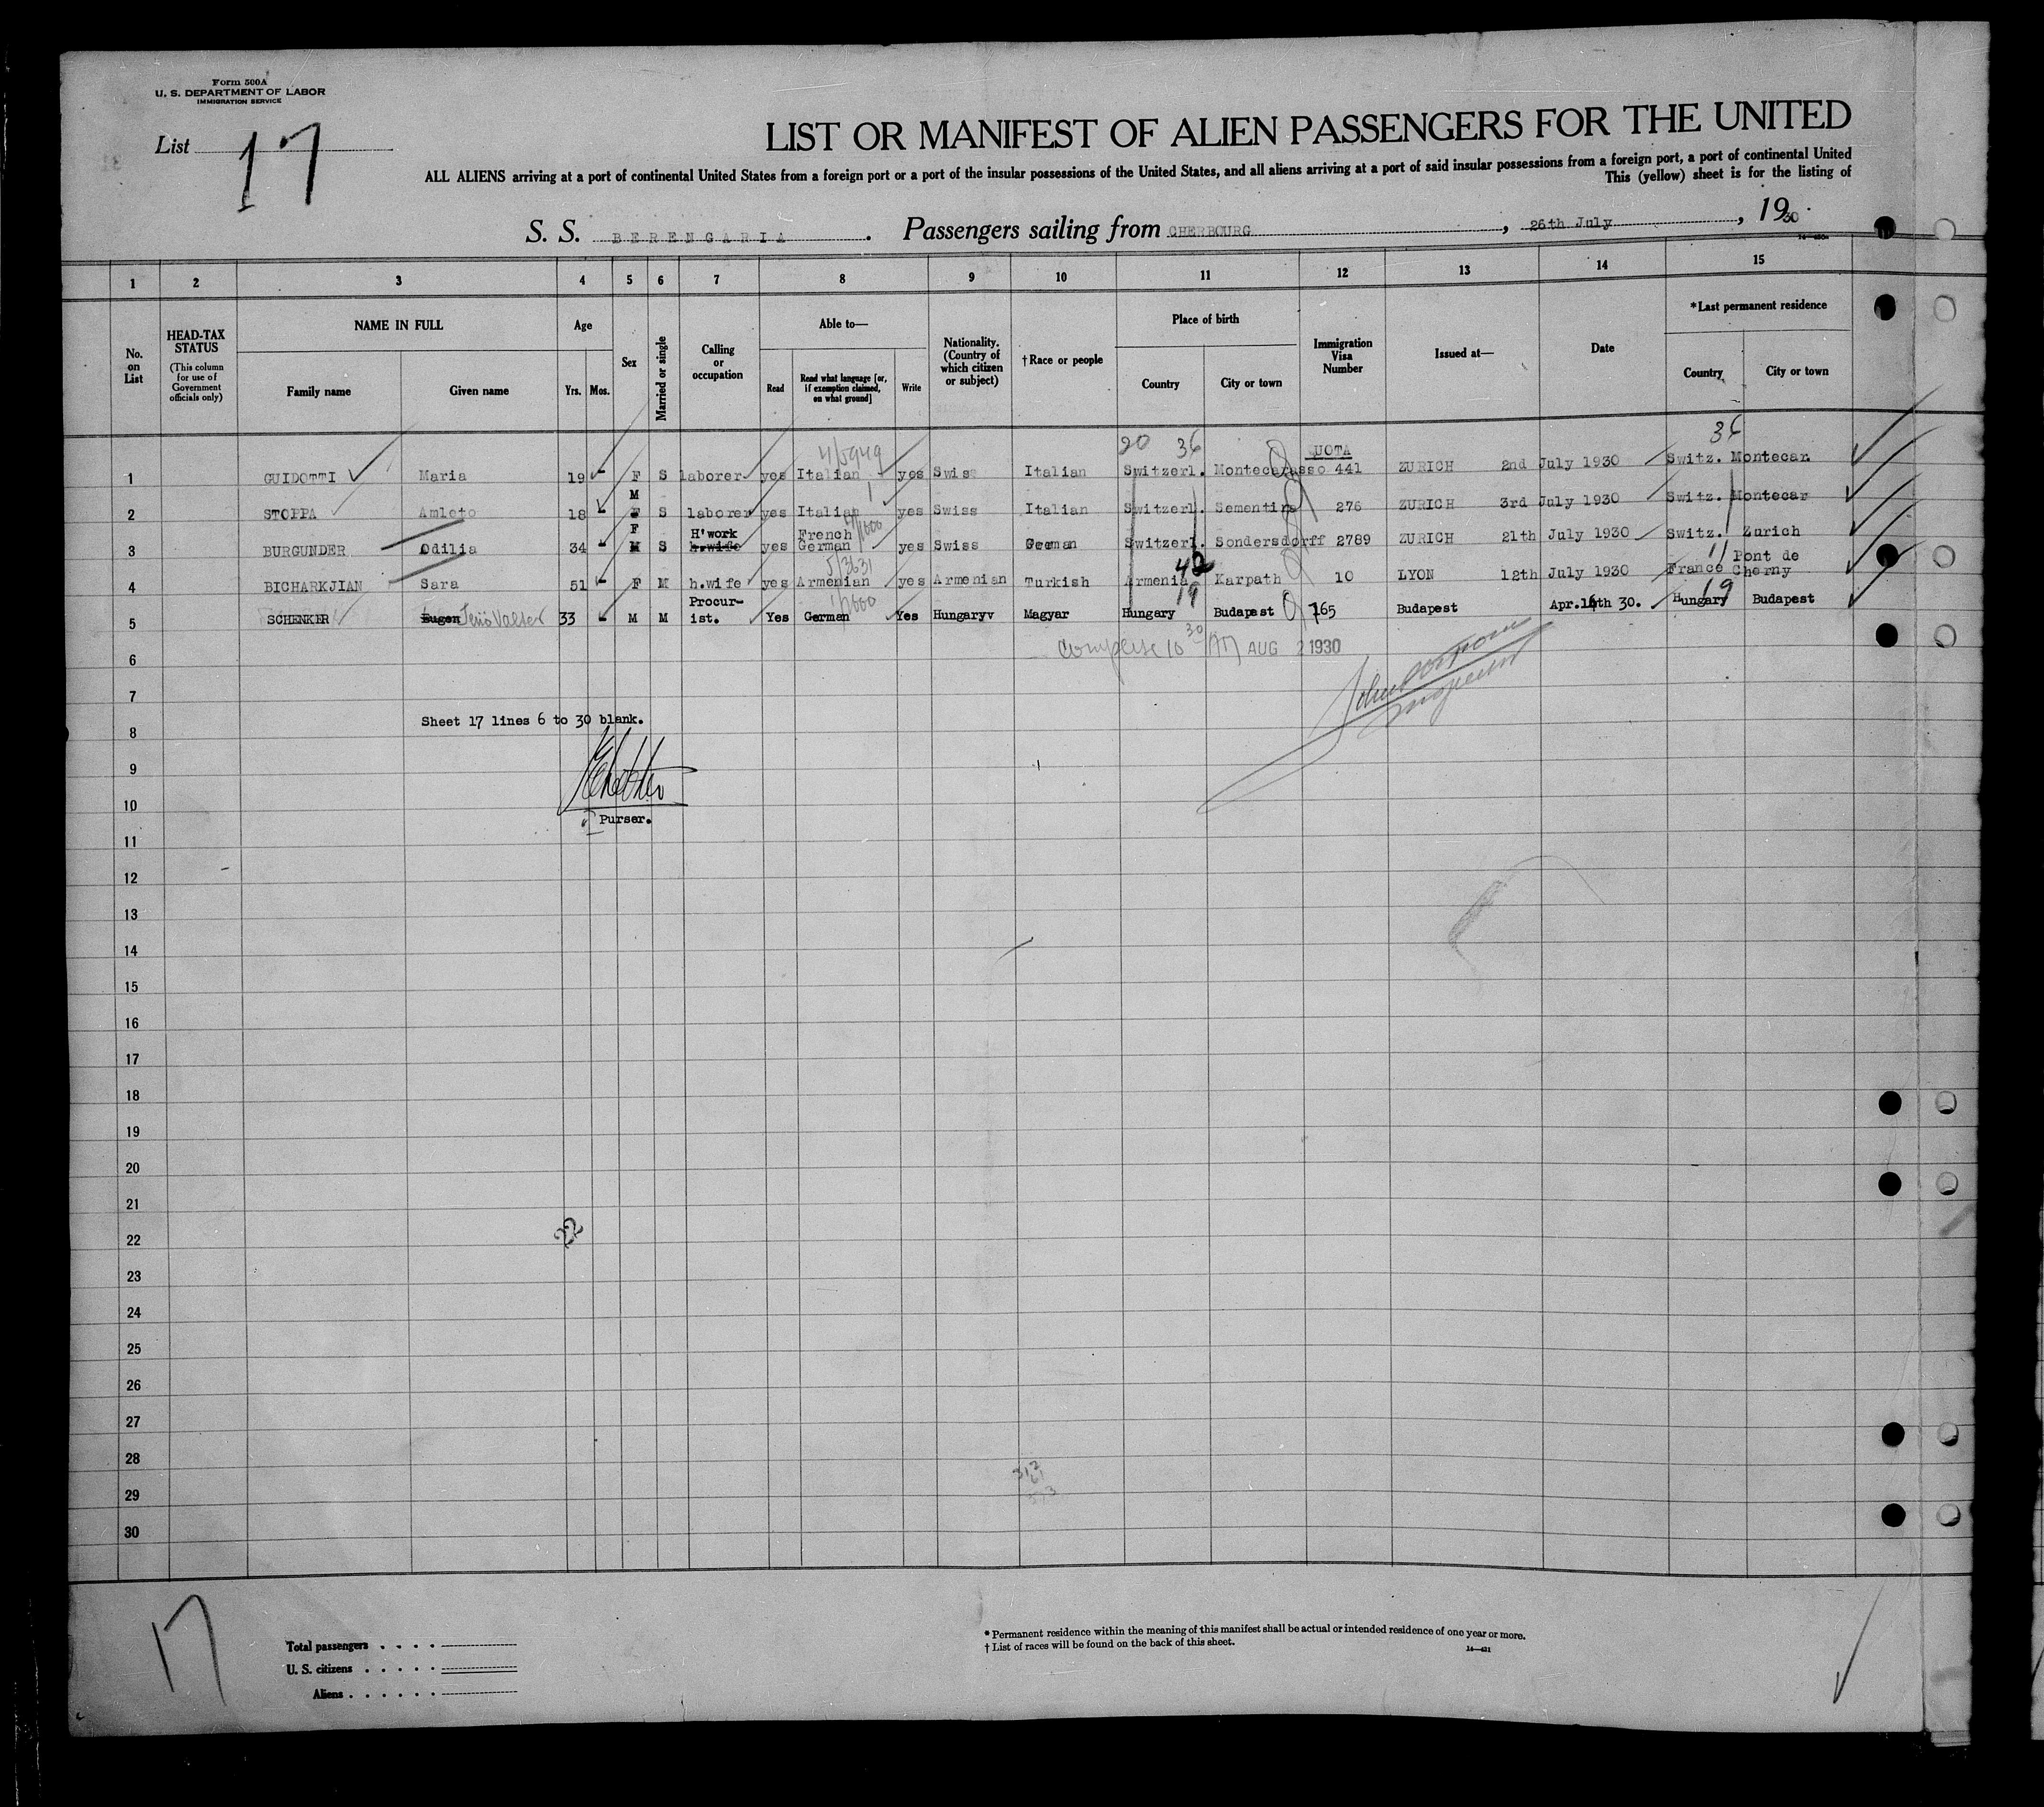 Form 500A
U. S. DEPARTMENT OF LABOR
IMMIGRATION SERVICE
List 17
LIST OR MANIFEST OF ALIEN PASSENGERS FOR THE UNITED
ALL ALIENS arriving at a port of continental United States from a foreign port or a port of the insular possessions of the United States, and all aliens arriving at a port of said insular possessions from a foreign port, a port of continental United
This (yellow) sheet is for the listing of
S. S. BERENGARIA. Passengers sailing from CHERBOURG, 26th July, 1930.
1 2 3 4 5 6 7 8 9 10 11 12 13 14 15
No. on List
HEAD-TAX STATUS
(This column for use of Government officials only)
NAME IN FULL
Family name Given name
Age
Yrs. Mos.
Sex
Married or single
Calling or occupation
Able to—
Read
Read what language [or, if exemption claimed, on what ground]
Write
Nationality. (Country of which citizen or subject)
†Race or people
Place of birth
Country City or town
Immigration Visa Number
Issued at—
Date
*Last permanent residence
Country City or town
4/5949 20 36 UOTA 36
1 GUIDOTTI Maria 19 - F S laborer yes Italian yes Swiss Italian Switzerl. Montecarasso 441 ZURICH 2nd July 1930 Switz. Montecar.
M
2 STOPPA Amleto 18 - F S laborer yes Italian yes Swiss Italian Switzerl. Sementina 276 ZURICH 3rd July 1930 Switz. Montecar
F H'work French
3 BURGUNDER Odilia 34 - M S h.wife yes German yes Swiss German Switzerl. Sondersdorff 2789 ZURICH 21th July 1930 Switz. Zurich
5/3631 42 11 Pont de
4 BICHARKJIAN Sara 51 - F M h.wife yes Armenian yes Armenian Turkish Armenia Karpath 10 LYON 12th July 1930 France Cherny
Procur- 19 19
5 SCHENKER Eugen Jenö Valter 33 - M M ist. Yes German Yes Hungaryv Magyar Hungary Budapest 765 Budapest Apr.16th 30. Hungary Budapest
6
AM AUG 2 1930
7
John
Inspector
Sheet 17 lines 6 to 30 blank.
8
9
10
Purser.
11
12
13
14
15
16
17
18
19
20
21
22
22
23
24
25
26
27
28
29
30
17
Total passengers
U. S. citizens
Aliens
* Permanent residence within the meaning of this manifest shall be actual or intended residence of one year or more.
† List of races will be found on the back of this sheet.